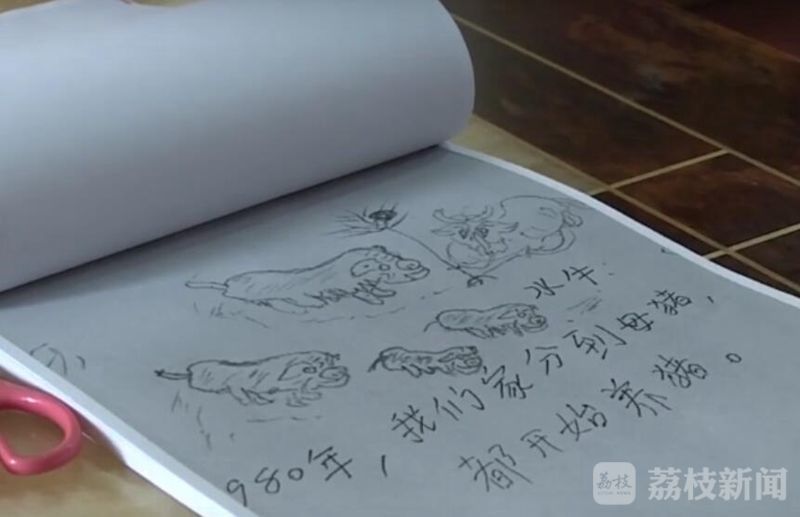 水牛.
980年，我们家分到母猪，
都开始养猪。
荔枝
荔枝新闻